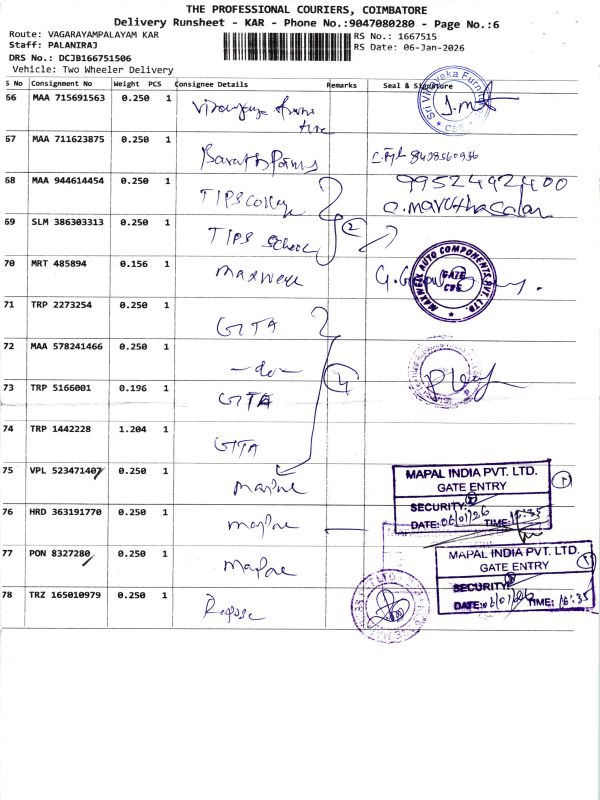 THE PROFESSIONAL COURIERS, COIMBATORE
Delivery Runsheet - KAR - Phone No.:9047080280 - Page No.:6
Route: VAGARAYAMPALAYAM KAR
RS No.: 1667515
Staff: PALANIRAJ
RS Date: 06-Jan-2026
DRS No.: DCJB166751506
Vehicle: Two Wheeler Delivery
S No Consignment No Weight PCS Consignee Details Remarks Seal & Signature
66 MAA 715691563 0.250 1
Sri Vinayaka Furni
CBE
67 MAA 711623875 0.250 1 8428560936
68 MAA 944614454 0.250 1 TIPS College 9952492400
a. maruthasalam
69 SLM 386303313 0.250 1 TIPS School 2
70 MRT 485894 0.156 1 Maxwell
MAXWELL AUTO COMPONENTS PVT. LTD.
GATE
CBE
71 TRP 2273254 0.250 1 GITA
72 MAA 578241466 0.250 1 -do-
4
73 TRP 5166001 0.196 1 GITA
74 TRP 1442228 1.204 1 GITA
75 VPL 523471407 0.250 1 Mapal
MAPAL INDIA PVT. LTD.
GATE ENTRY
SECURITY:
DATE: 06/01/26 TIME:
76 HRD 363191770 0.250 1 Mapal
77 PON 8327280 0.250 1 Mapal
MAPAL INDIA PVT. LTD.
GATE ENTRY
SECURITY:
DATE: TIME: 
78 TRZ 165010979 0.250 1